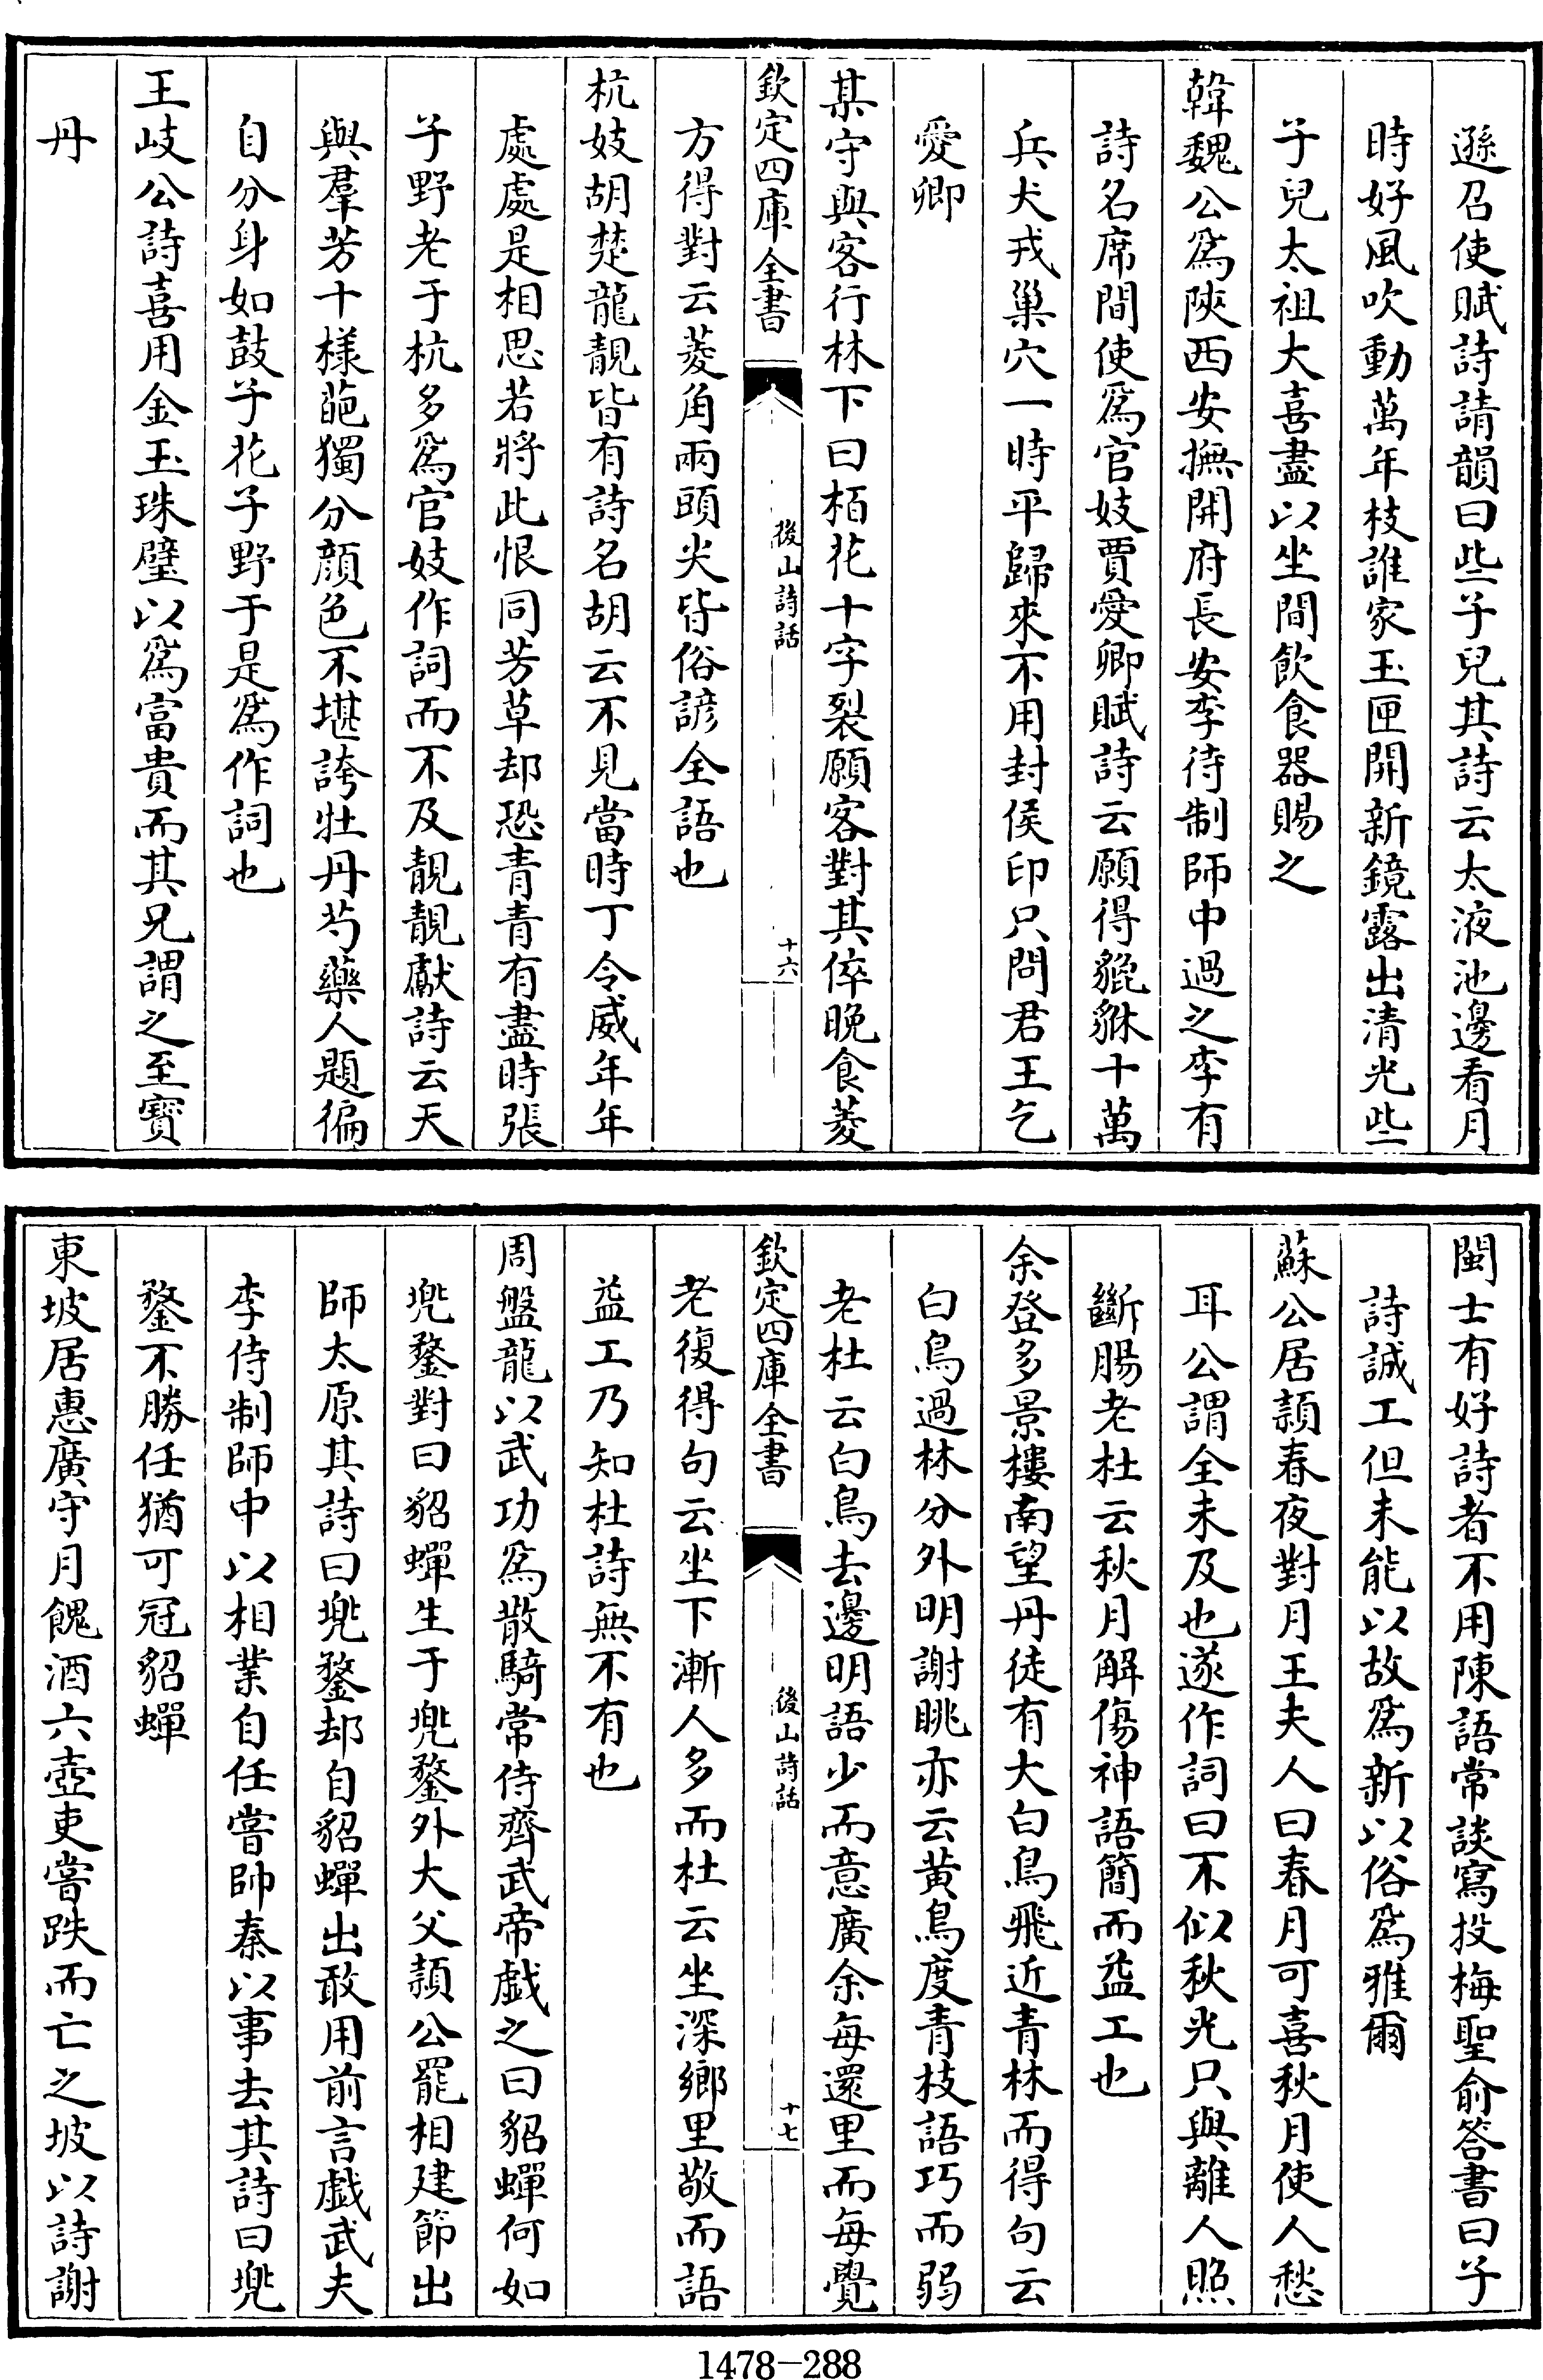 遜召使賦詩請韻曰些子兒其詩云太液池邊看月
時好風吹動萬年枝誰家玉匣開新鏡露出清光些
子兒太祖大喜盡以坐間飲食器賜之
韓魏公為陝西安撫開府長安李待制師中過之李有
詩名席間使為官妓賈愛卿賦詩云願得貔貅十萬
兵犬戎巢穴一時平歸來不用封侯印只問君王乞
愛卿
某守與客行林下曰栢花十字裂願客對其倅晚食菱
欽定四庫全書
後山詩話
十六
方得對云菱角兩頭尖皆俗諺全語也
杭妓胡楚龍靚皆有詩名胡云不見當時丁令威年年
處處是相思若將此恨同芳草却恐青青有盡時張
子野老于杭多為官妓作詞而不及靚靚獻詩云天
與羣芳十樣葩獨分顔色不堪誇牡丹芍藥人題徧
自分身如鼓子花子野于是為作詞也
王岐公詩喜用金玉珠璧以為富貴而其兄謂之至寶
丹
閩士有好詩者不用陳語常談寫投梅聖俞答書曰子
詩誠工但未能以故為新以俗為雅爾
蘇公居潁春夜對月王夫人曰春月可喜秋月使人愁
耳公謂全未及也遂作詞曰不似秋光只與離人照
斷腸老杜云秋月解傷神語簡而益工也
余登多景樓南望丹徒有大白鳥飛近青林而得句云
白鳥過林分外明謝眺亦云黄鳥度青枝語巧而弱
老杜云白鳥去邊明語少而意廣余每還里而每覺
欽定四庫全書
後山詩話
十七
老復得句云坐下漸人多而杜云坐深鄉里敬而語
益工乃知杜詩無不有也
周盤龍以武功為散騎常侍齊武帝戲之曰貂蟬何如
兠鍪對曰貂蟬生于兠鍪外大父潁公罷相建節出
師太原其詩曰兠鍪却自貂蟬出敢用前言戲武夫
李侍制師中以相業自任嘗帥秦以事去其詩曰兠
鍪不勝任猶可冠貂蟬
東坡居惠廣守月餽酒六壺吏嘗跌而亡之坡以詩謝
1478-288